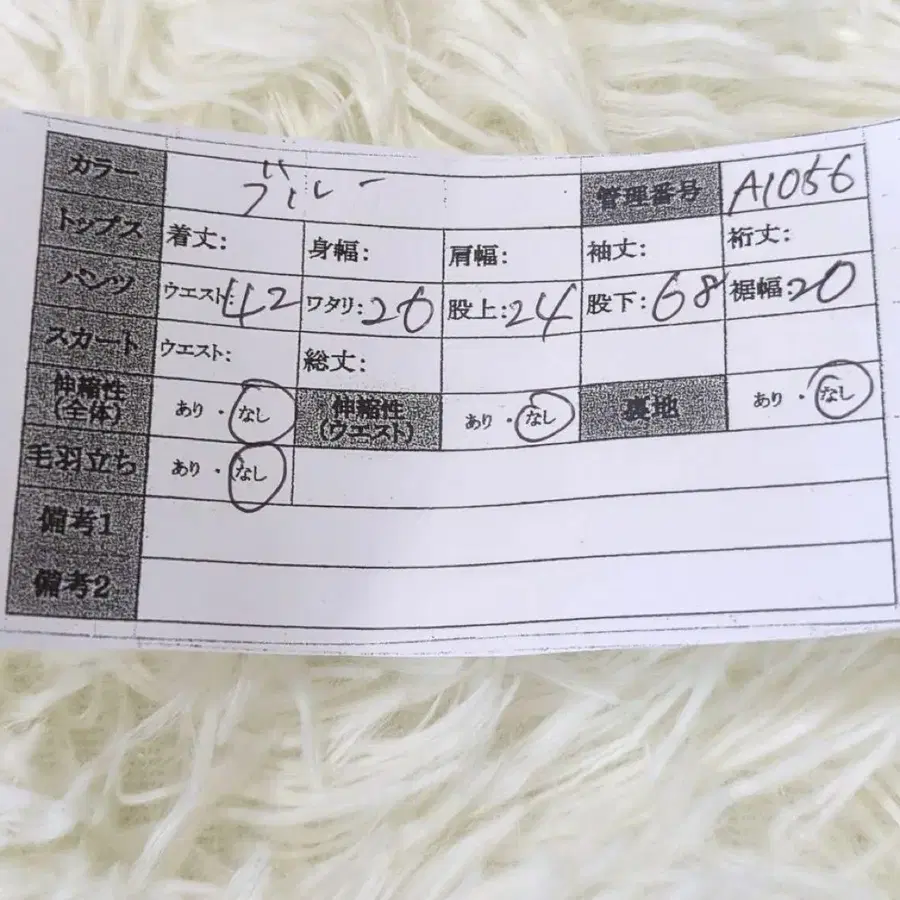 カラー ブルー 管理番号 A1056
トップス 着丈: 身幅: 肩幅: 袖丈: 裄丈:
パンツ ウエスト:42 ワタリ:26 股上:24 股下:68 裾幅:20
スカート ウエスト: 総丈:
伸縮性(全体) あり・なし 伸縮性(ウエスト) あり・なし 裏地 あり・なし
毛羽立ち あり・なし
備考1
備考2